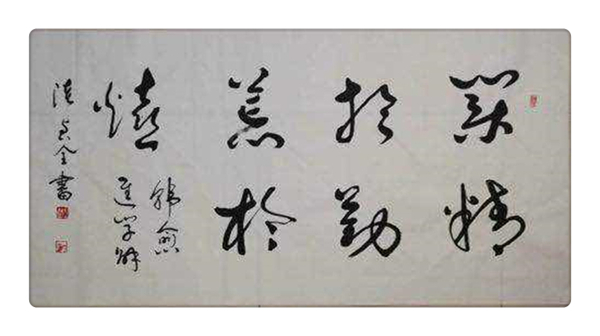 業精
於勤
荒於
嬉
韓愈
進學解
貞全書